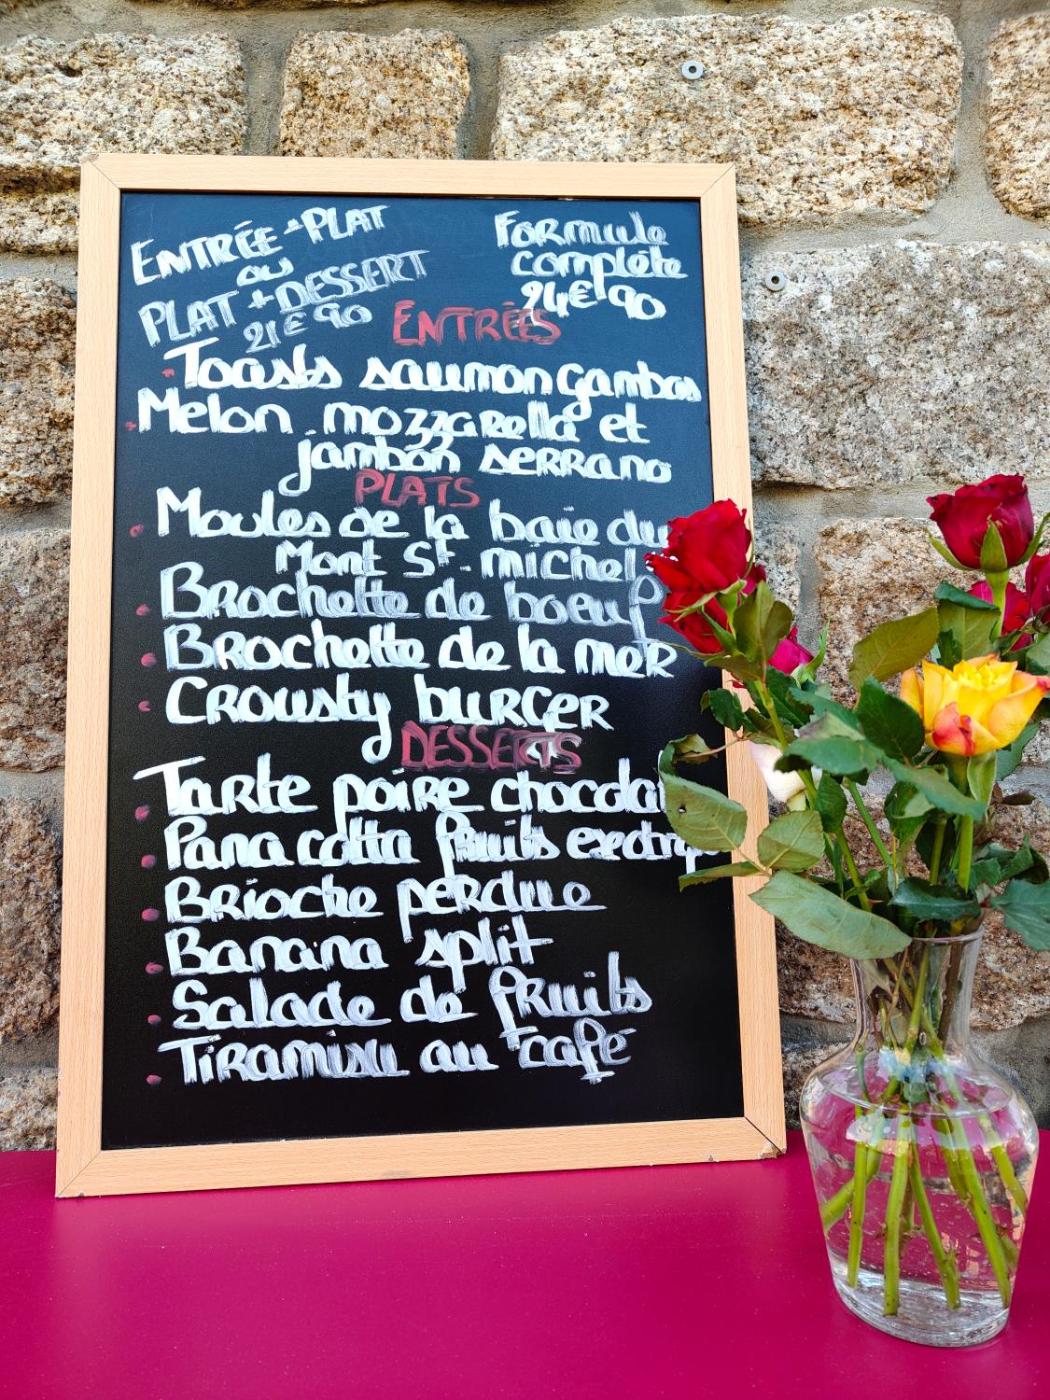 ENTRÉE + PLAT
ou
PLAT + DESSERT
21€90
Formule
complète
24€90
ENTRÉES
Toasts saumon gambas
Melon mozzarella et
jambon serrano
PLATS
Moules de la baie du
Mont St. michel
Brochette de boeuf
Brochette de la mer
Crousty burger
DESSERTS
Tarte poire chocola
Pana cotta fruits
Brioche perdue
Banana split
Salade de fruits
Tiramisu au café